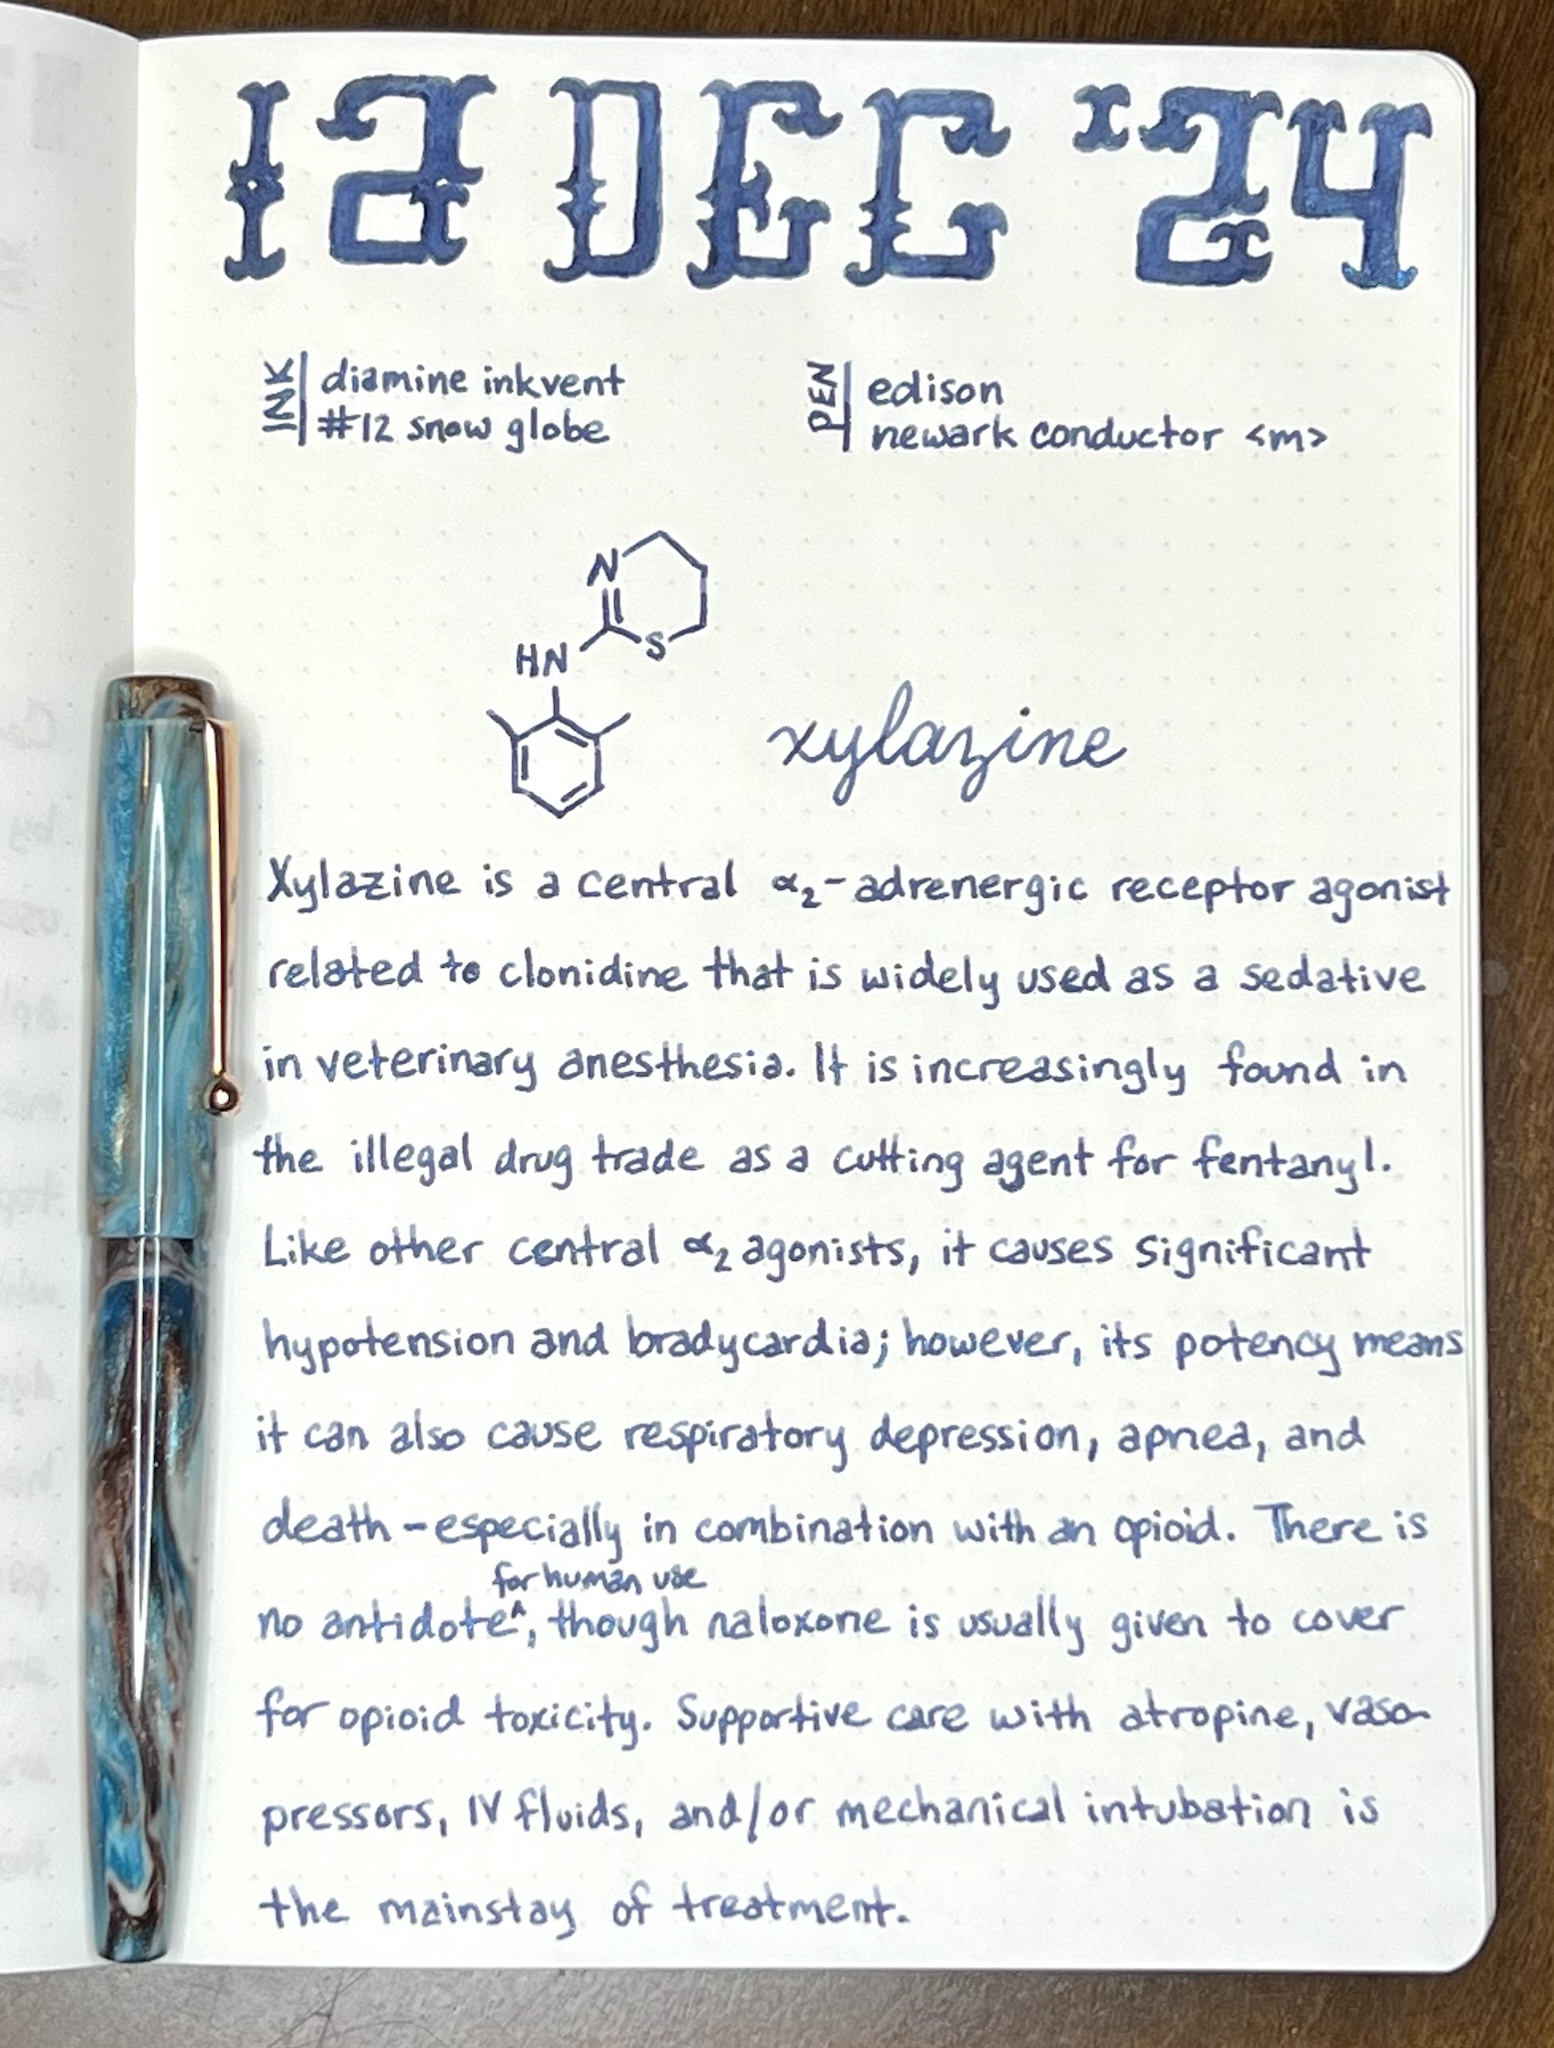 12 DEC '24
INK
diamine inkvent
#12 snow globe
PEN
edison
newark conductor <m>
N
S
HN
xylazine
Xylazine is a central α₂-adrenergic receptor agonist
related to clonidine that is widely used as a sedative
in veterinary anesthesia. It is increasingly found in
the illegal drug trade as a cutting agent for fentanyl.
Like other central α₂ agonists, it causes significant
hypotension and bradycardia; however, its potency means
it can also cause respiratory depression, apnea, and
death - especially in combination with an opioid. There is
for human use
no antidote^, though naloxone is usually given to cover
for opioid toxicity. Supportive care with atropine, vaso-
pressors, IV fluids, and/or mechanical intubation is
the mainstay of treatment.